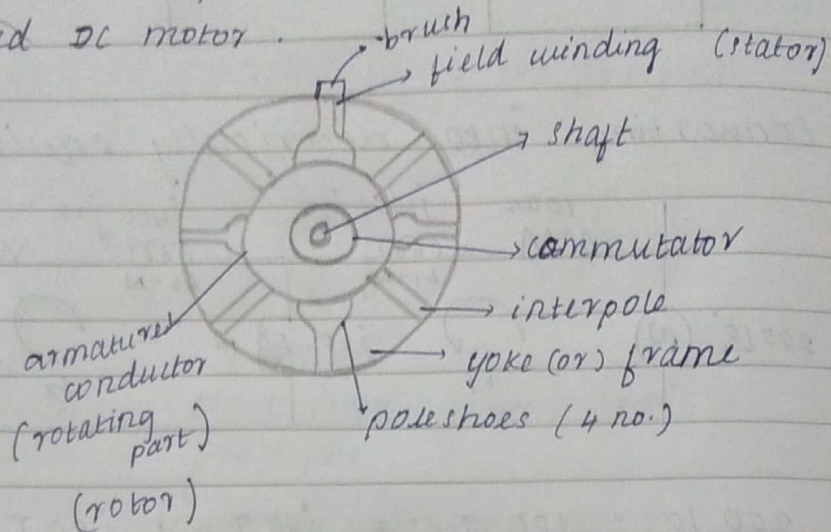 DC motor.
brush
field winding (stator)
shaft
commutator
interpole
yoke (or) frame
poleshoes (4 no.)
armature
conductor
(rotating
part)
(rotor)